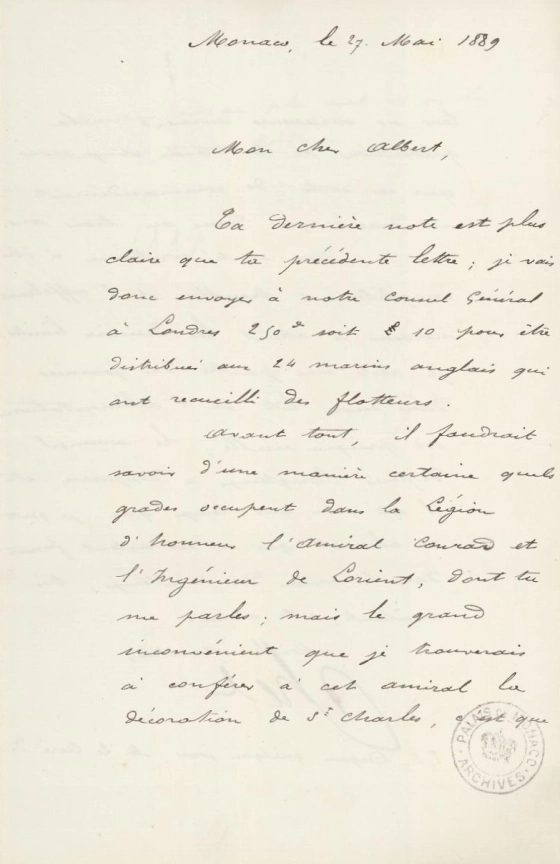 Monaco, le 27. Mai 1889
Mon cher Albert,
Ta dernière note est plus
claire que ta précédente lettre ; je vais
donc envoyer à notre Consul Général
à Londres 250 soit £ 10 pour être
distribués aux 24 marins anglais qui
ont recueilli des flotteurs.
Avant tout, il faudrait
savoir d'une manière certaine quels
grades occupent dans la Légion
d'honneur l'amiral Conrad et
l'Ingénieur de Lorient, dont tu
me parles ; mais le grand
inconvénient que je trouverais
à conférer à cet amiral la
décoration de St Charles, c'est que
PALAIS DE MONACO
ARCHIVES